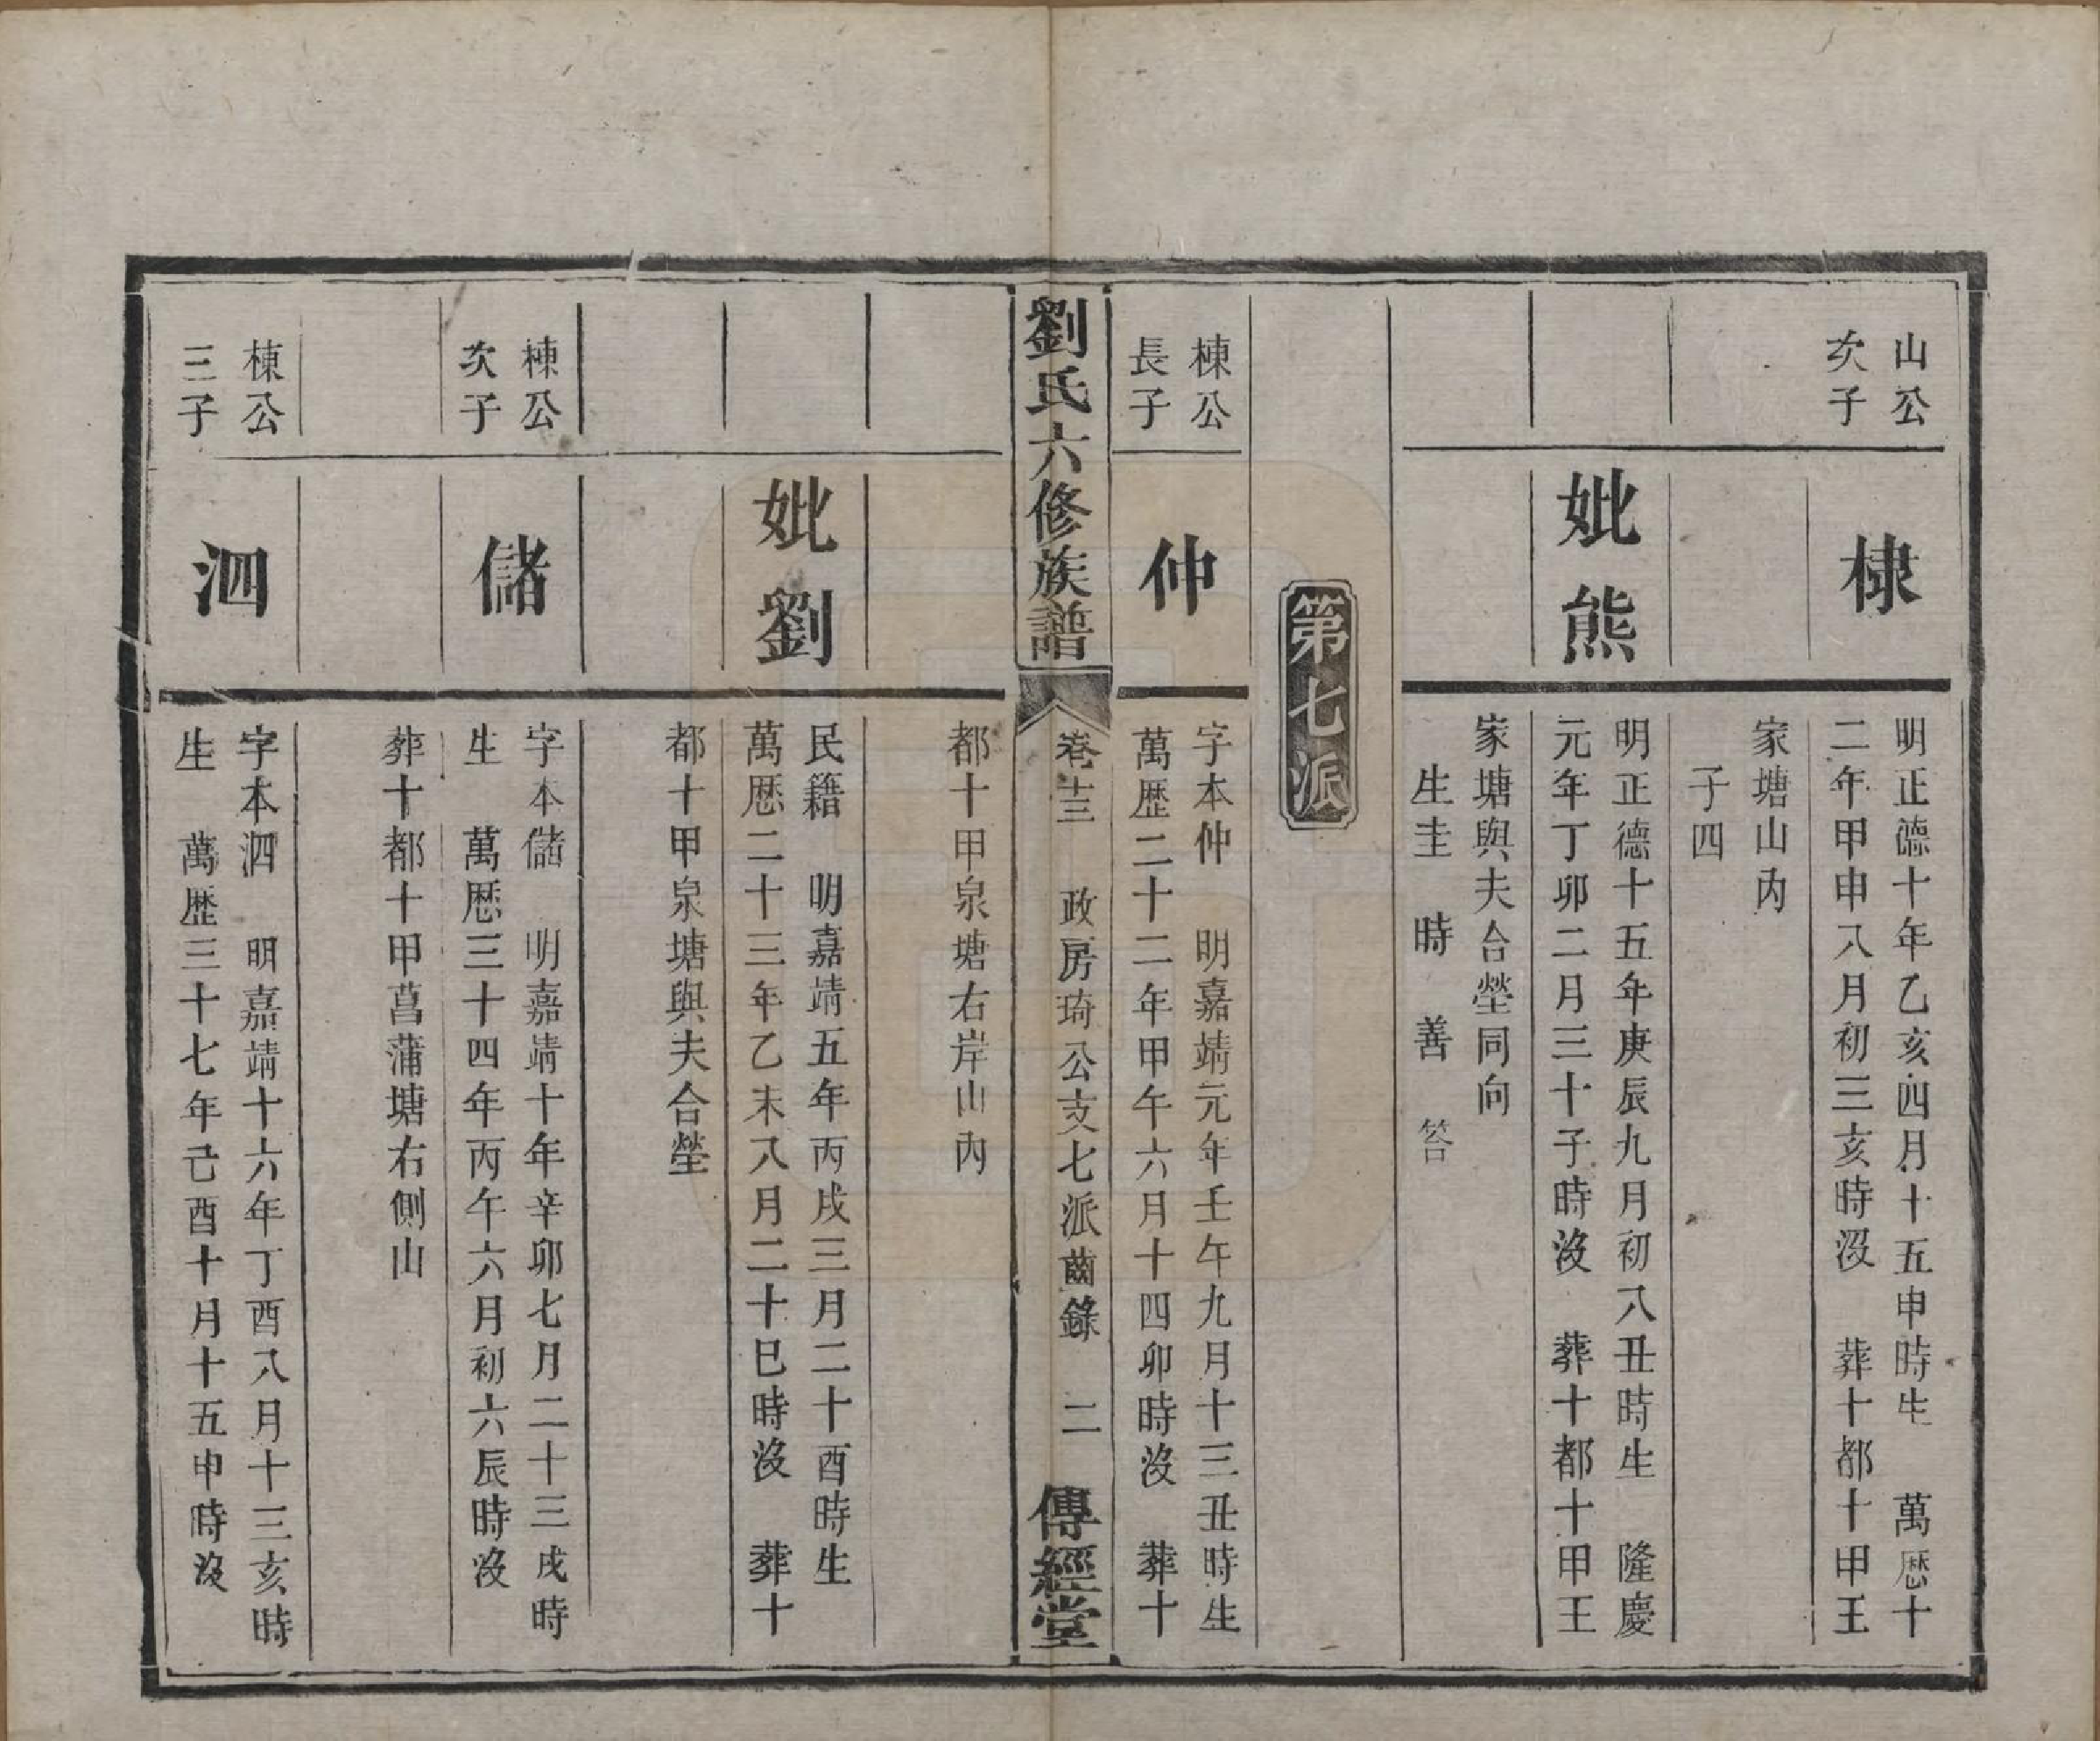 山公
次子
棣
明正德十年乙亥四月十五申時生　萬歷十
二年甲申八月初三亥時沒　葬十都十甲王
家塘山內
子四
妣熊
明正德十五年庚辰九月初八丑時生　隆慶
元年丁卯二月三十子時沒　葬十都十甲王
家塘與夫合塋同向
生圭　時　善　答
第七派
棟公
長子
仲
字本仲　明嘉靖元年壬午九月十三丑時生
萬歷二十二年甲午六月十四卯時沒　葬十
劉氏六修族譜
卷十三　政房琦公支七派齒錄　二
傳經堂
都十甲泉塘右岸山內
妣劉
民籍　明嘉靖五年丙戌三月二十酉時生
萬歷二十三年乙未八月二十巳時沒　葬十
都十甲泉塘與夫合塋
棟公
次子
儲
字本儲　明嘉靖十年辛卯七月二十三戌時
生　萬歷三十四年丙午六月初六辰時沒
葬十都十甲菖蒲塘右側山
棟公
三子
泗
字本泗　明嘉靖十六年丁酉八月十三亥時
生　萬歷三十七年己酉十月十五申時沒